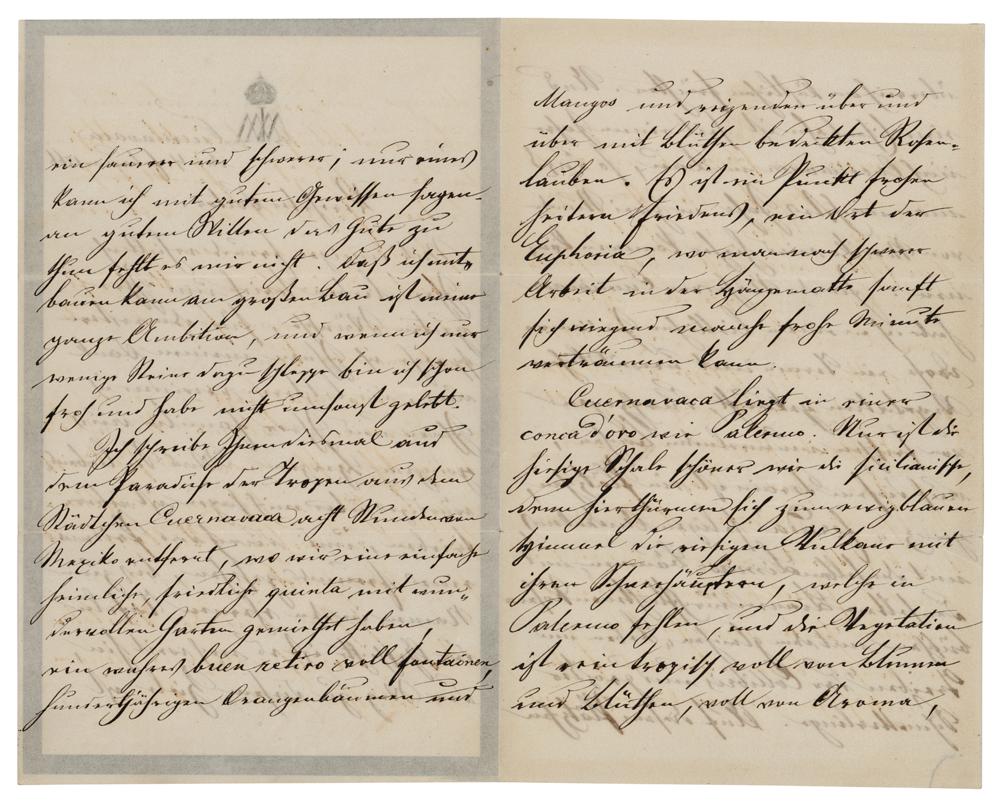 ein saurer und schwerer; nur eines
kann ich mit gutem Gewissen sagen
an gutem Willen das Gute zu
thun fehlt es mir nicht. Daß ich mit„
bauen kann am großen Bau ist meine
ganze Ambition, und wenn ich nur
wenige Steine dazu schleppe bin ich schon
froh und habe nicht umsonst gelebt.
Ich schreibe Ihnen diesmal aus
dem Paradiese der Tropen aus dem
Städtchen Cuernavaca acht Stunden von
Mexiko entfernt, wo wir eine einfache
heimliche, friedliche quinta mit wun„
dervollen Garten gemiethet haben,
ein wahres buen retiro voll fontainen,
hundertjährigen Orangenbäumen und
Mangos und reizenden über und
über mit Blüthen bedeckten Rosen-
lauben. Es ist ein Punkt frohen
heitern Friedens, ein Ort der
Euphoria, wo man nach schwerer
Arbeit in der Hängematte sanft
sich wiegend manche frohe Minute
verträumen kann.
Cuernavaca liegt in einer
conca d'oro wie Palermo. Nur ist die
hiesige Schale schöner wie die sicilianische,
denn hier thürmen sich zum ewig blauen
Himmel die riesigen Vulkane mit
ihren Schneehäuptern, welche in
Palermo fehlen, und die Vegetation
ist rein tropisch voll von Blumen
und Blüthen, voll von Aroma,